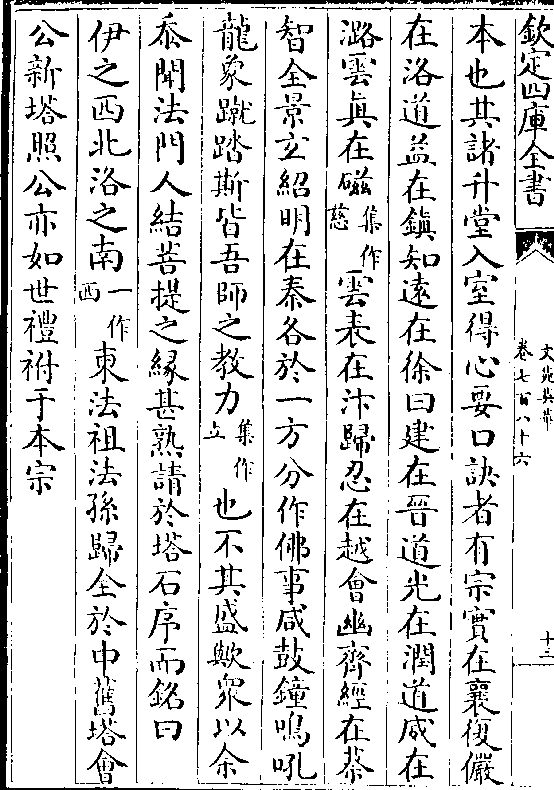 欽定四庫全書
文苑英華
卷七百八十六
十三
本也其諸升堂入室得心要口訣者有宗實在襄復儼
在洛道益在鎮知遠在徐曰建在晉道光在潤道威在
潞雲真在磁集作慈雲表在汴歸忍在越會幽齊經在蔡
智全景玄紹明在秦各於一方分作佛事咸鼓鐘鳴吼
龍象蹴踏斯皆吾師之教力集作立也不其盛歟眾以余
忝聞法門人結菩提之緣甚熟請於塔石序而銘曰
伊之西北洛之南一作西東法祖法孫歸全於中舊塔會
公新塔照公亦如世禮祔于本宗